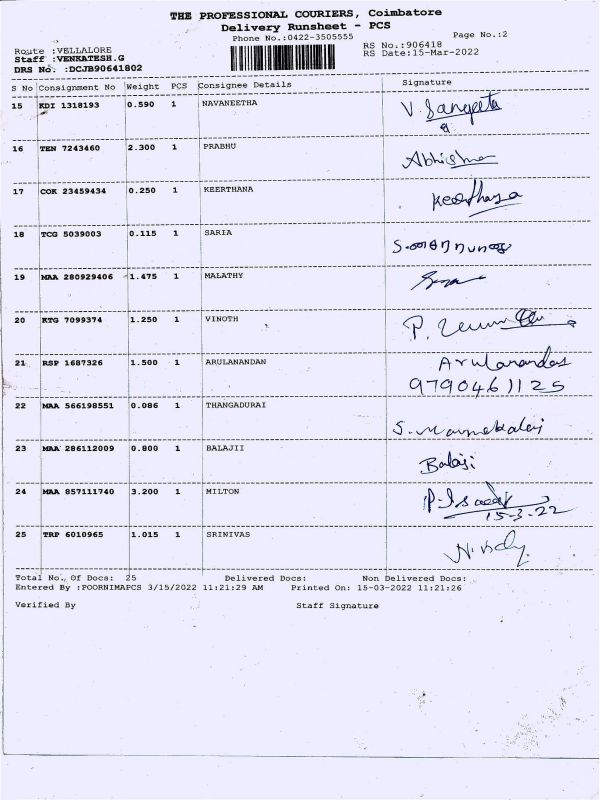 THE PROFESSIONAL COURIERS, Coimbatore
Delivery Runsheet - PCS
Phone No.:0422-3505555
Page No.:2
Route :VELLALORE
RS No.:906418
Staff :VENKATESH.G
RS Date:15-Mar-2022
DRS No. :DCJB90641802
S No Consignment No Weight PCS Consignee Details Signature
15 KDI 1318193 0.590 1 NAVANEETHA V. Sangeeta
16 TEN 7243460 2.300 1 PRABHU
17 COK 23459434 0.250 1 KEERTHANA Keerthana
18 TCG 5039003 0.115 1 SARIA
19 MAA 280929406 1.475 1 MALATHY
20 KTG 7099374 1.250 1 VINOTH P.
21 RSP 1687326 1.500 1 ARULANANDAN Arulanandas
9790461125
22 MAA 566198551 0.086 1 THANGADURAI S.
23 MAA 286112009 0.800 1 BALAJII Balaji
24 MAA 857111740 3.200 1 MILTON P.
15-3-22
25 TRP 6010965 1.015 1 SRINIVAS
Total No. Of Docs: 25 Delivered Docs: Non Delivered Docs:
Entered By :POORNIMAPCS 3/15/2022 11:21:29 AM Printed On: 15-03-2022 11:21:26
Verified By Staff Signature